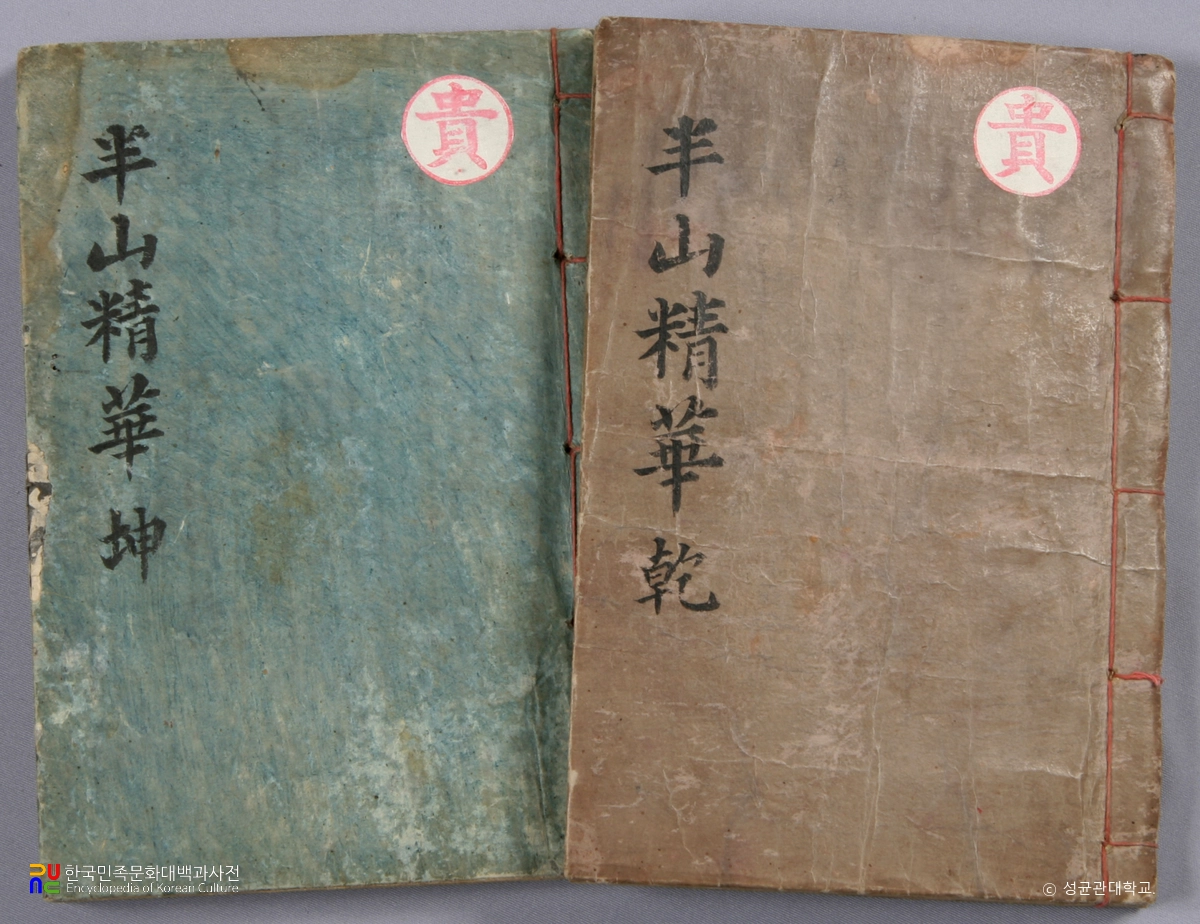 半山精華 坤
貴
半山精華 乾
貴
한국민족문화대백과사전
Encyclopedia of Korean Culture
© 성균관대학교.